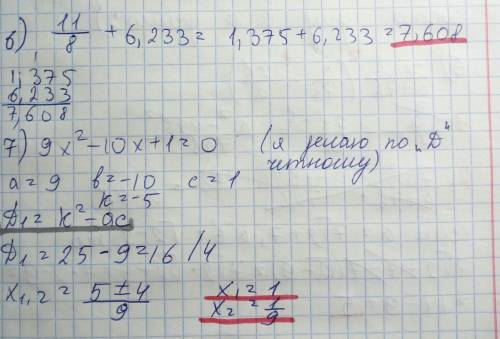 в) 11/8 + 6,233 = 1,375 + 6,233 = 7,608
1,375
6,233
7,608
7) 9x² - 10x + 1 = 0 (я делаю по „Д" четному)
a = 9 b = -10 c = 1
k = -5
Д₁ = k² - ac
Д₁ = 25 - 9 = 16 /4
x₁,₂ = 5 ± 4 / 9
x₁ = 1
x₂ = 1/9